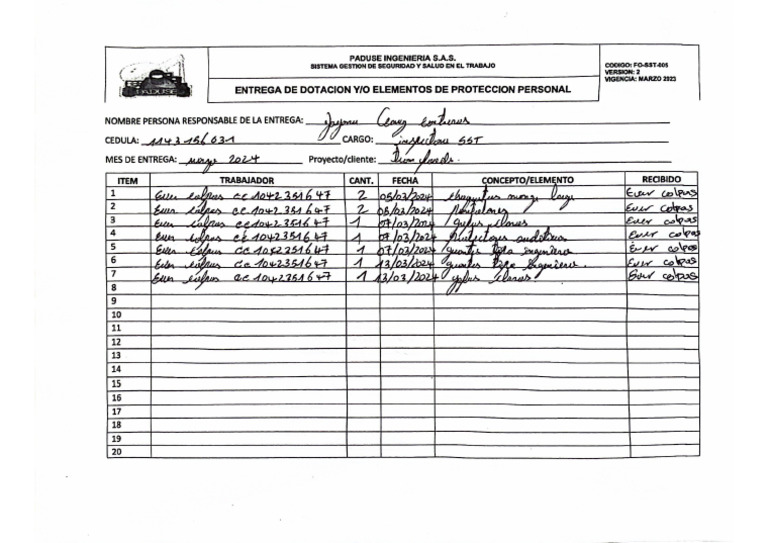 PADUSE INGENIERIA S.A.S.
SISTEMA GESTION DE SEGURIDAD Y SALUD EN EL TRABAJO
CODIGO: FO-SST-005
VERSION: 2
VIGENCIA: MARZO 2023
PADUSE
ENTREGA DE DOTACION Y/O ELEMENTOS DE PROTECCION PERSONAL
NOMBRE PERSONA RESPONSABLE DE LA ENTREGA:
CEDULA: 1143156031 CARGO: inspectora SST
MES DE ENTREGA: marzo 2024 Proyecto/cliente:
ITEM TRABAJADOR CANT. FECHA CONCEPTO/ELEMENTO RECIBIDO
1 Ever colpas cc 1042351647 2 05/03/2024 manga larga Ever colpas
2 Ever colpas cc 1042351647 2 05/03/2024 Pantalones Ever colpas
3 Ever colpas cc 1042351647 1 07/03/2024 Ever colpas
4 Ever colpas cc 1042351647 1 07/03/2024 auditivos Ever colpas
5 Ever colpas cc 1042351647 1 07/03/2024 guantes tipo ingeniero Ever colpas
6 Ever colpas cc 1042351647 1 13/03/2024 guantes tipo ingeniero Ever colpas
7 Ever colpas cc 1042351647 1 13/03/2024 Ever colpas
8
9
10
11
12
13
14
15
16
17
18
19
20